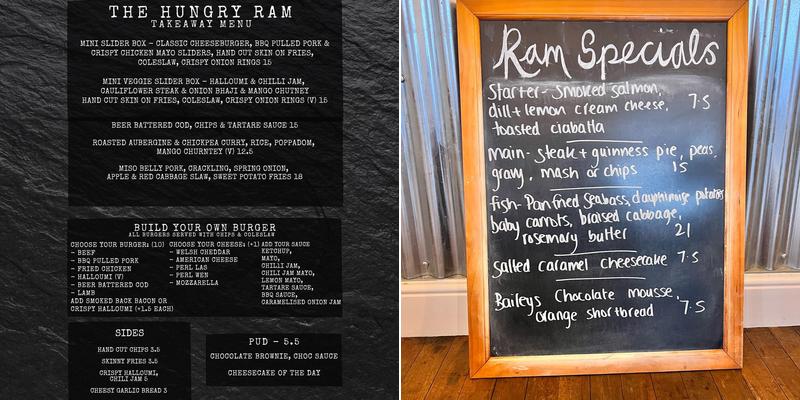 THE HUNGRY RAM
TAKEAWAY MENU
MINI SLIDER BOX - CLASSIC CHEESEBURGER, BBQ PULLED PORK &
CRISPY CHICKEN MAYO SLIDERS, HAND CUT SKIN ON FRIES,
COLESLAW, CRISPY ONION RINGS 15
MINI VEGGIE SLIDER BOX - HALLOUMI & CHILLI JAM,
CAULIFLOWER STEAK & ONION BHAJI & MANGO CHUTNEY
HAND CUT SKIN ON FRIES, COLESLAW, CRISPY ONION RINGS (V) 15
BEER BATTERED COD, CHIPS & TARTARE SAUCE 15
ROASTED AUBERGINE & CHICKPEA CURRY, RICE, POPPADOM,
MANGO CHURNTEY (V) 12.5
MISO BELLY PORK, CRACKLING, SPRING ONION,
APPLE & RED CABBAGE SLAW, SWEET POTATO FRIES 18
BUILD YOUR OWN BURGER
ALL BURGERS SERVED WITH CHIPS & COLESLAW
CHOOSE YOUR BURGER: (10)
- BEEF
- BBQ PULLED PORK
- FRIED CHICKEN
- HALLOUMI (V)
- BEER BATTERED COD
- LAMB
ADD SMOKED BACK BACON OR
CRISPY HALLOUMI (+1.5 EACH)
CHOOSE YOUR CHEESE: (+1)
- WELSH CHEDDAR
- AMERICAN CHEESE
- PERL LAS
- PERL WEN
- MOZZARELLA
ADD YOUR SAUCE
KETCHUP,
MAYO,
CHILLI JAM,
CHILI JAM MAYO,
LEMON MAYO,
TARTARE SAUCE,
BBQ SAUCE,
CARAMELISED ONION JAM
SIDES
HAND CUT CHIPS 3.5
SKINNY FRIES 3.5
CRISPY HALLOUMI,
CHILI JAM 5
CHEESY GARLIC BREAD 3
PUD - 5.5
CHOCOLATE BROWNIE, CHOC SAUCE
CHEESECAKE OF THE DAY
Ram Specials
Starter - Smoked salmon,
dill + lemon cream cheese, 7.5
toasted ciabatta
main - steak + guinness pie, peas,
gravy, mash or chips 15
fish - Pan fried Seabass, dauphinoise potatoes
baby carrots, braised cabbage,
rosemary butter 21
salted caramel cheesecake 7.5
Baileys Chocolate mousse,
orange shortbread 7.5